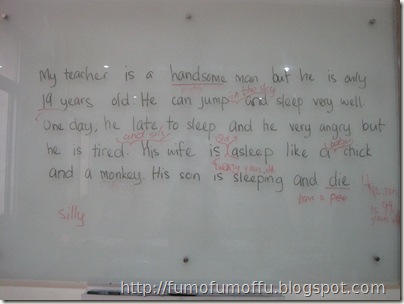 My teacher is a handsome man but he is only
in the sky
19 years old. He can jump and sleep very well.
One day, he late to sleep and he very angry but
and silly
he is tired. His wife is asleep like a chick
and a monkey. His son is sleeping and die
have a pee
silly
http://fumofumoffu.blogspot.com